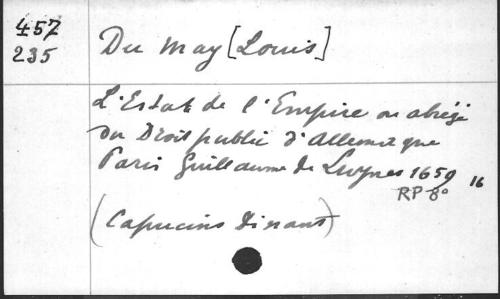 457
235
Du May [Louis]
L'Estat de l'Empire ou abrégé
du Droit public d'Allemagne
Paris Guillaume de Luynes 1659 16
RP 8°
(Capucins Dinant)